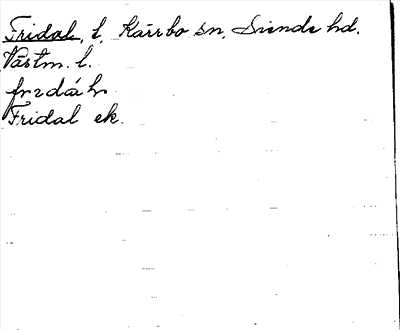 Fridal, l, Kärrbo sn, Siende hd.
Västm. l.
Fridal ek.